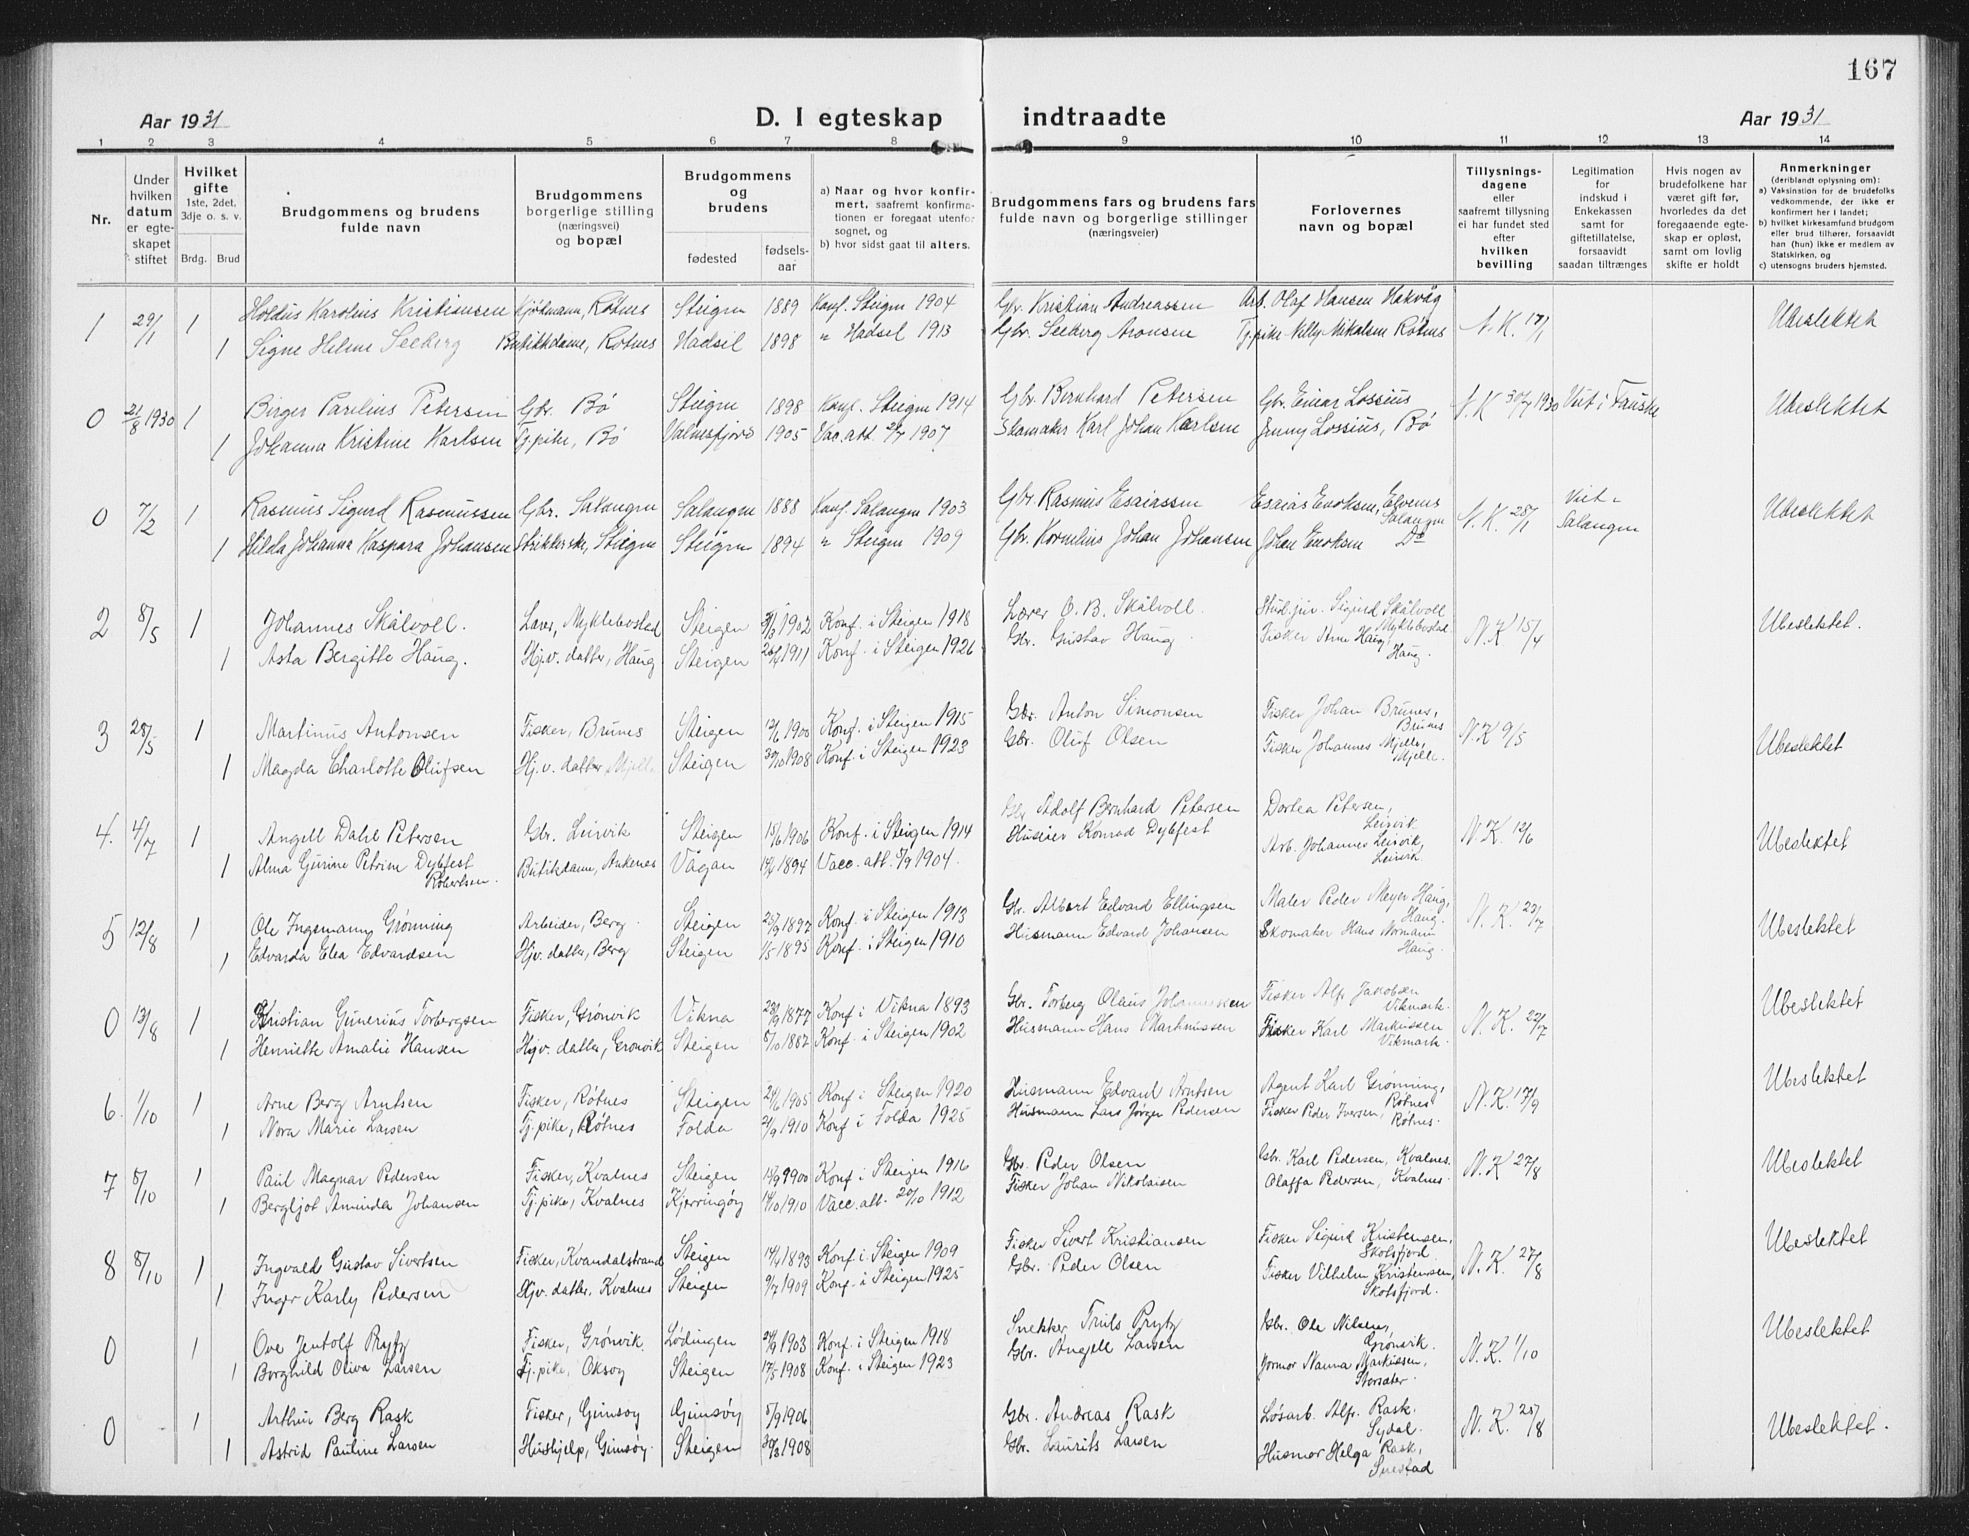 167
Aar 1931 D. I egteskap indtraadte Aar 1931
1 2 3 4 5 6 7 8 9 10 11 12 13 14
Nr.
Under hvilken datum er egteskapet stiftet
Hvilket gifte 1ste, 2det, 3dje o. s. v.
Brdg. Brud
Brudgommens og brudens fulde navn
Brudgommens borgerlige stilling (næringsvei) og bopæl
Brudgommens og brudens
fødested
fødselsaar
a) Naar og hvor konfirmert, saafremt konfirmationen er foregaat utenfor sognet, og
b) hvor sidst gaat til alters.
Brudgommens fars og brudens fars fulde navn og borgerlige stillinger (næringsveier)
Forlovernes navn og bopæl
Tillysningsdagene eller saafremt tillysning ei har fundet sted efter hvilken bevilling
Legitimation for indskud i Enkekassen samt for giftetillatelse, forsaavidt saadan tiltrænges
Hvis nogen av brudefolkene har været gift før, hvorledes da det foregaaende egteskap er opløst, samt om lovlig skifte er holdt
Anmerkninger (deriblandt oplysning om):
a) Vaksination for de brudefolks vedkommende, der ikke er konfirmert her i landet;
b) hvilket kirkesamfund brudgom eller brud tilhører, forsaavidt han (hun) ikke er medlem av Statskirken, og
c) utensogns bruders hjemsted.
1 29/1 1 Karolius Kristiansen Røtnes Steigen 1889 Konf. Steigen 1904 Gbr. Kristian Andreassen Arb. Olaf Hansen Hakvåg N.K. 17/1 Ubeslektet
1 Signe Helene Seeberg Butikkdame, Røtnes Hadsel 1898 " Hadsel 1913 Gbr. Seeberg Aronsen Tj.pike Nelly Mikalsen Røtnes
0 21/8 1930 1 Birger Parelius Petersen Gbr. Bø Steigen 1898 Konf. Steigen 1914 Gbr. Bernhard Petersen Gbr. Einar Lossius N.K. 30/7 1930 Viet i Fauske Ubeslektet
1 Johanna Kristine Karlsen Tj.pike, Bø Valnesfjord 1905 Vac. att. 2/7 1907 Skomaker Karl Johan Karlsen Jenny Lossius, Bø
0 7/2 1 Rasmus Sigurd Rasmussen Gbr. Salangen Salangen 1888 Konf. Salangen 1903 Gbr. Rasmus Esaiassen Esaias Enoksen, Elvenes Salangen N.K. 28/1 Viet i Salangen Ubeslektet
1 Hilda Johanna Kaspara Johansen Strikkerske, Steigen Steigen 1894 " Steigen 1909 Gbr. Kornelius Johan Johansen Johan Enoksen Do
2 8/5 1 Johannes Skålvoll. Lærer, Myklebostad Steigen 1902 Konf. i Steigen 1918 Lærer O. B. Skålvoll. Sigurd Skålvoll Myklebostad N.K. 15/4 Ubeslektet.
1 Asta Bergitte Haug. Hj.v. datter, Haug Steigen 1911 Konf. i Steigen 1926 Gbr. Gustav Haug. Fisker Arne Haug, Haug.
3 28/5 1 Martinus Antonsen Fisker, Brunes Steigen 12/6 1900 Konf. i Steigen 1915 Gbr. Anton Simonsen Fisker Johan Brunes, Brunes N.K. 9/5 Ubeslektet
1 Magda Charlotte Olufsen Hj.v. datter Mjelle Steigen 30/10 1908 Konf. i Steigen 1923 Gbr. Oluf Olsen Fisker Johannes Mjelle, Mjelle.
4. 4/7 1 Angell Dahl Petersen Gbr. Leirvik Steigen 15/6 1906 Konf. i Steigen 1914 Gbr Adolf Bernhard Petersen Dortea Petersen, Leirvik N.K. 12/6 Ubeslektet
1 Alma Gurine Petrine Dybfest Robertsen. Butikdame, Ankenes Vågan 1894 Vacc. att. 5/9 1904. Huseier Konrad Dybfest Arb. Johannes Leirvik, Leirvik.
5 12/8 1 Ole Ingemann Grønning Arbeider, Berg. Steigen 25/9 1897 Konf. i Steigen 1913 Gbr. Albert Edvard Ellingsen Maler Peder Meyer Haug, Haug. N.K. 23/7 Ubeslektet
1 Edvarda Elea Edvardsen Hj.v. datter, Berg Steigen 1/5 1895 Konf. i Steigen 1910 Husmann Edvard Johansen Skomaker Hans Normann Haug.
0 13/8 1 Kristian Gunerius Torbergsen Fisker, Grønvik Vikna 23/9 1877 Konf i Vikna 1893 Gbr. Torberg Olaus Johannessen Fisker Alf. Jakobsen Vikmark. N.K. 22/7 Ubeslektet
1 Henriette Amalie Hansen Hjv. datter, Grønvik Steigen 5/10 1887 Konf. i Steigen 1902 Husmann Hans Martinussen Fisker Karl Markussen Vikmark.
6. 1/10 1 Arne Berg Arntsen Fisker, Røtnes Steigen 24/6 1905 Konf i Steigen 1920 Husmann Edvard Arntsen Agent Karl Grønning, Røtnes N.K. 17/9 Ubeslektet
1 Nora Marie Larsen Tj.pike, Røtnes Folda 2/9 1910 Konf i Folda 1925 Husmann Lars Jørgen Pedersen Fisker Peder Iversen, Røtnes.
7 8/10 1 Paul Magnar Pedersen Fisker, Kvalnes Steigen 15/9 1900 Konf i Steigen 1916 Gbr. Peder Olsen Gbr. Karl Pedersen, Kvalnes. N.K. 27/8 Ubeslektet
1 Bergljot Aminda Johansen Tj.pike, Kvalnes Kjerringøy 14/10 1910 Vacc. att. 20/10 1912 Fisker Johan Nikolaisen Olaffa Pedersen, Kvalnes.
8 8/10 1 Ingvald Gustav Sivertsen Fisker, Kvandalstrand Steigen 14/4 1893 Konf. i Steigen 1909 Fisker Sivert Kristiansen Fisker Sigurd Kristensen, Skotsfjord N.K. 27/8 Ubeslektet
1 Inger Karly Pedersen Hjv. datter, Kvalnes Steigen 9/7 1909 Konf. i Steigen 1925 Gbr. Peder Olsen Fisker Vilhelm Kristensen, Skotsfjord.
0 1 Ove Jentolf Prytz Fisker, Grønvik. Lødingen 1903 Konf. i Steigen 1918 Snekker Truls Prytz Gbr. Ole Nilsen, Grønvik. N.K. 1/10 Ubeslektet
1 Borghild Oliva Larsen Tj.pike, Oksøy Steigen 17/5 1908 Konf. i Steigen 1923 Gbr. Angell Larsen Jormor Nanna Markussen, Storsæter.
0 1 Arthur Berg Rask Fisker, Gimsøy Gimsøy 5/9 1906 Gbr. Andreas Rask Løsarb. Alf. Rask. Sydal. N.K. 25/8 Ubeslektet.
1 Astrid Pauline Larsen Hushjelp, Gimsøy. Steigen 30/8 1908 Gbr. Laurits Larsen Husmor Helga Rask,